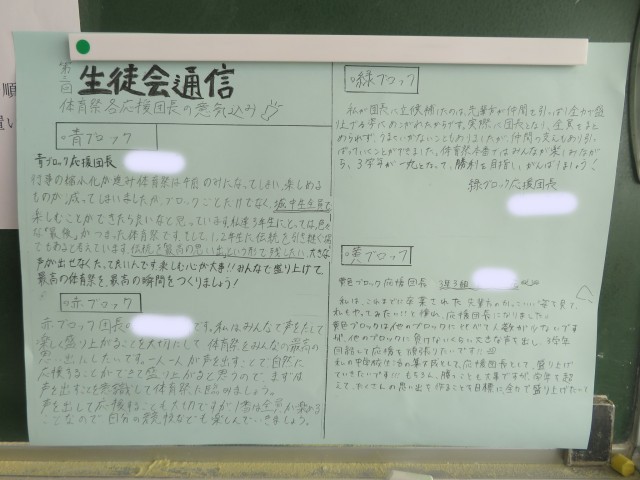 生徒会通信
体育祭各応援団長の意気込み
青ブロック
青ブロック応援団長
行事の縮小化が進み体育祭は午前のみになってしまい、楽しめる
ものが減ってしまいましたが、ブロックごとだけでなく、城中生全員で
楽しむことができたら良いなと思っています。私達3年生にとっては、色々な
"最後"がつまった体育祭です。そして、1、2年生に伝統を引き継ぐ場
でもあると考えています。伝統を最高の思い出という形で残したい。大きな
声が出せなくたって良いんです。楽しむ心が大事!!みんなで盛り上げて
最高の体育祭を、最高の瞬間をつくりましょう!
赤ブロック
赤ブロック団長の です。私はみんなで声をだして
楽しく盛り上がることを大切にして体育祭をみんなの最高の
思い出にしたいです。一人一人が声を出すことで自然に
大きなることができて盛り上がると思うので、まずは
声を出すことを意識して体育祭へ臨みましょう。
声を出して応援することも大切ですが1番は全員が楽しむ
ことなので自分の競技なども楽しんでいきましょう。
緑ブロック
私が団長に立候補したのは、先輩方が仲間を引っぱり全力で盛
り上げる姿にあこがれたからです。実際に団長となり、全員をまと
められず、うまくいかないこともありましたが、仲間の支えもあり引っ
ぱっていくことができました。体育祭本番ではみんなが楽しみなが
ら、3学年が一丸となって、勝利を目指し、がんばりましょう!
緑ブロック応援団長
黄ブロック
黄色ブロック応援団長 3年3組
私は、これまでに卒業された先輩方のかっこいい姿を見て、
私もやってみたいと憧れ、応援団長になりました。
黄色ブロックは他のブロックに比べて人数が少ないです
が、他のブロックに負けないくらい大きな声を出し、3学年
団結して応援を頑張りたいです
私の中学校生活の集大成として、応援団長として、盛り上げ
ていきたいです!もちろん、勝つことも大事ですが、学年を超
えて、たくさんの思い出を作ることを目標に全力で盛り上げたいです